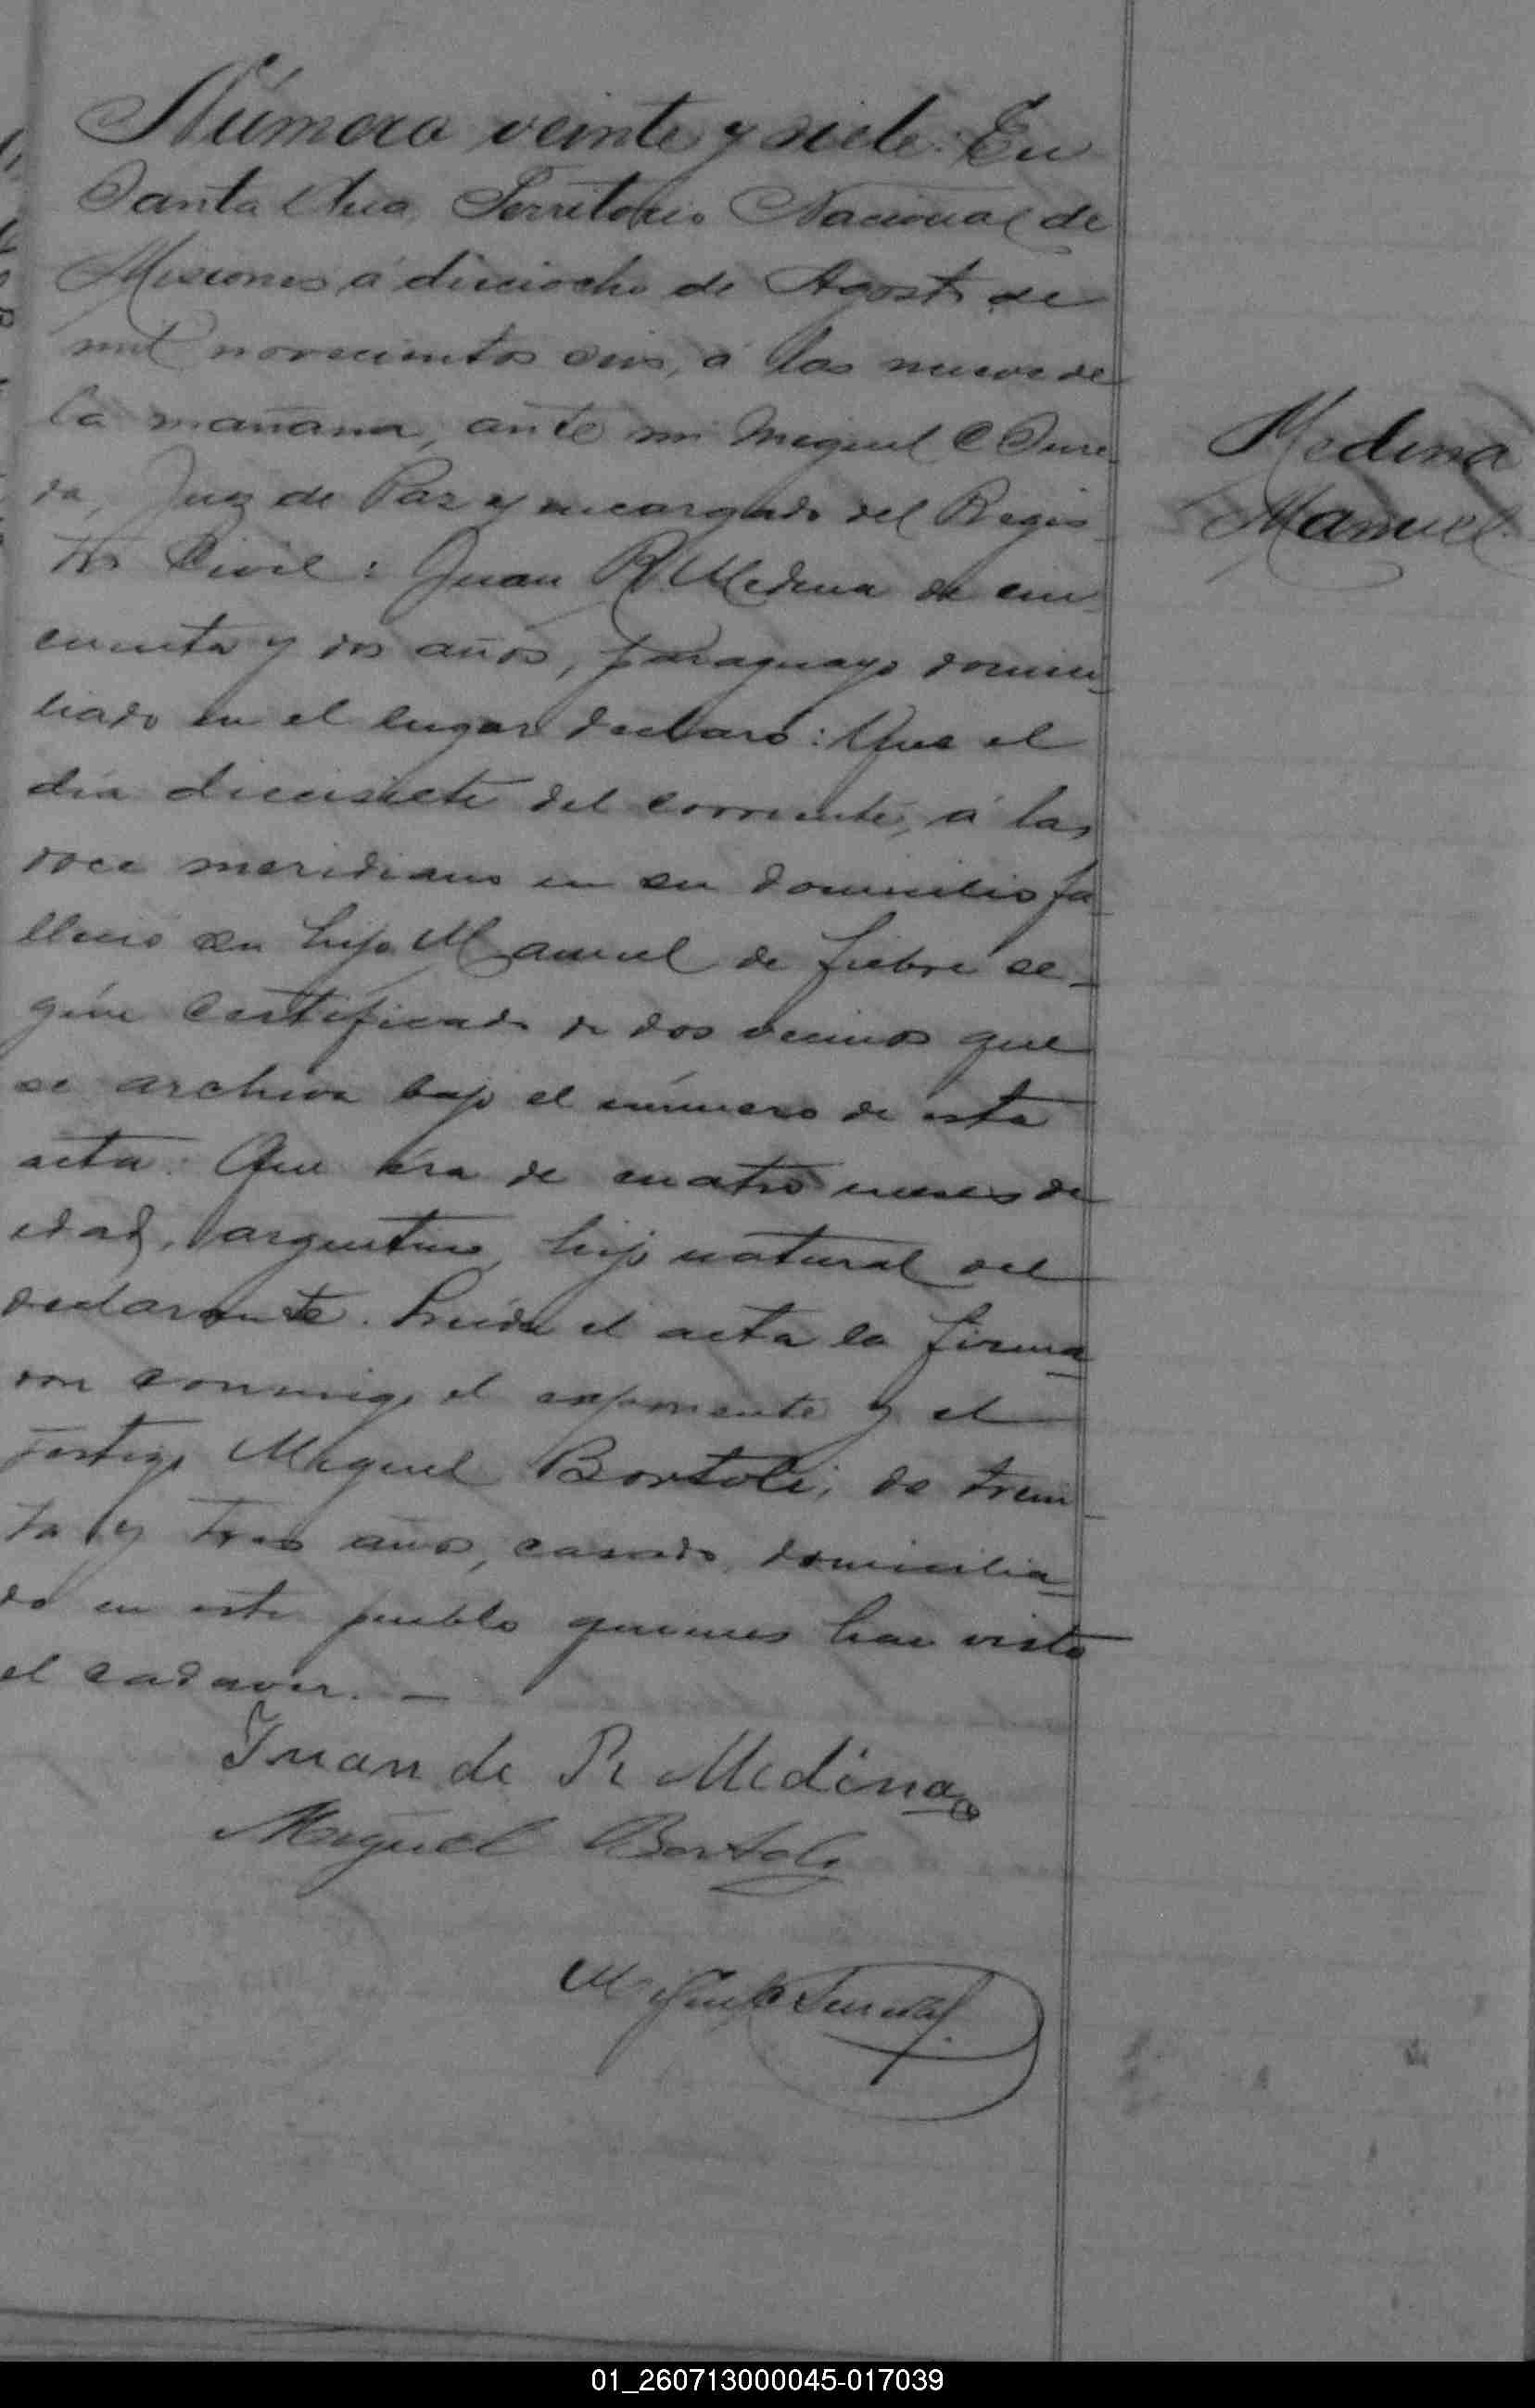 Número veinte y siete: En
Santa Ana, Territorio Nacional de
Misiones, á dieciocho de Agosto de
mil novecientos seis, á las nueve de
la mañana, ante mi Miguel C
da, Juez de Paz y encargado del Regis-
tro Civil: Juan R. Medina de cin-
cuenta y dos años, paraguayo domici-
liado en el lugar declaró: Que el
día diecisiete del corriente, á las
doce meridiano en su domicilio fa-
lleció su hijo Manuel de fiebre se-
gún certificado de dos vecinos que
se archiva bajo el número de esta
acta. Que era de cuatro meses de
edad, argentino, hijo natural del
declarante. Leida el acta la firma-
ron conmigo el exponente y el
testigo Miguel Bortoli, de trein-
ta y tres años, casado, domicilia-
do en este pueblo quienes han visto
el cadaver. —
Medina
Manuel
Juan de R Medina
Miguel Bortoli
Miguel C
01_260713000045-017039